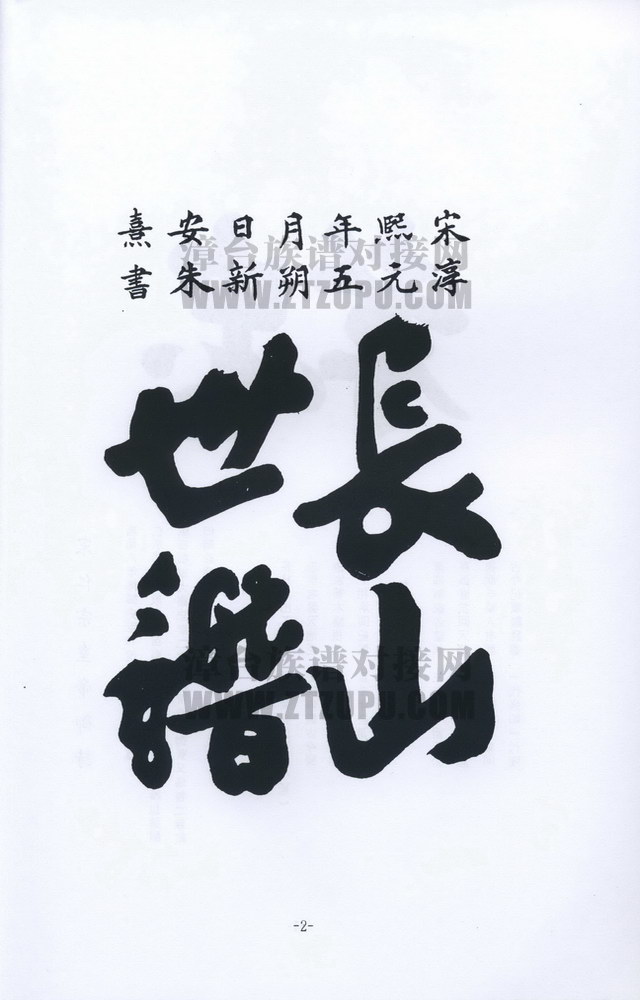 宋淳
熙元
年五
月朔
日新
安朱
熹書
長山
世譜
漳台族谱对接网
WWW.ZTZUPU.COM
漳台族谱对接网
WWW.ZTZUPU.COM
-2-